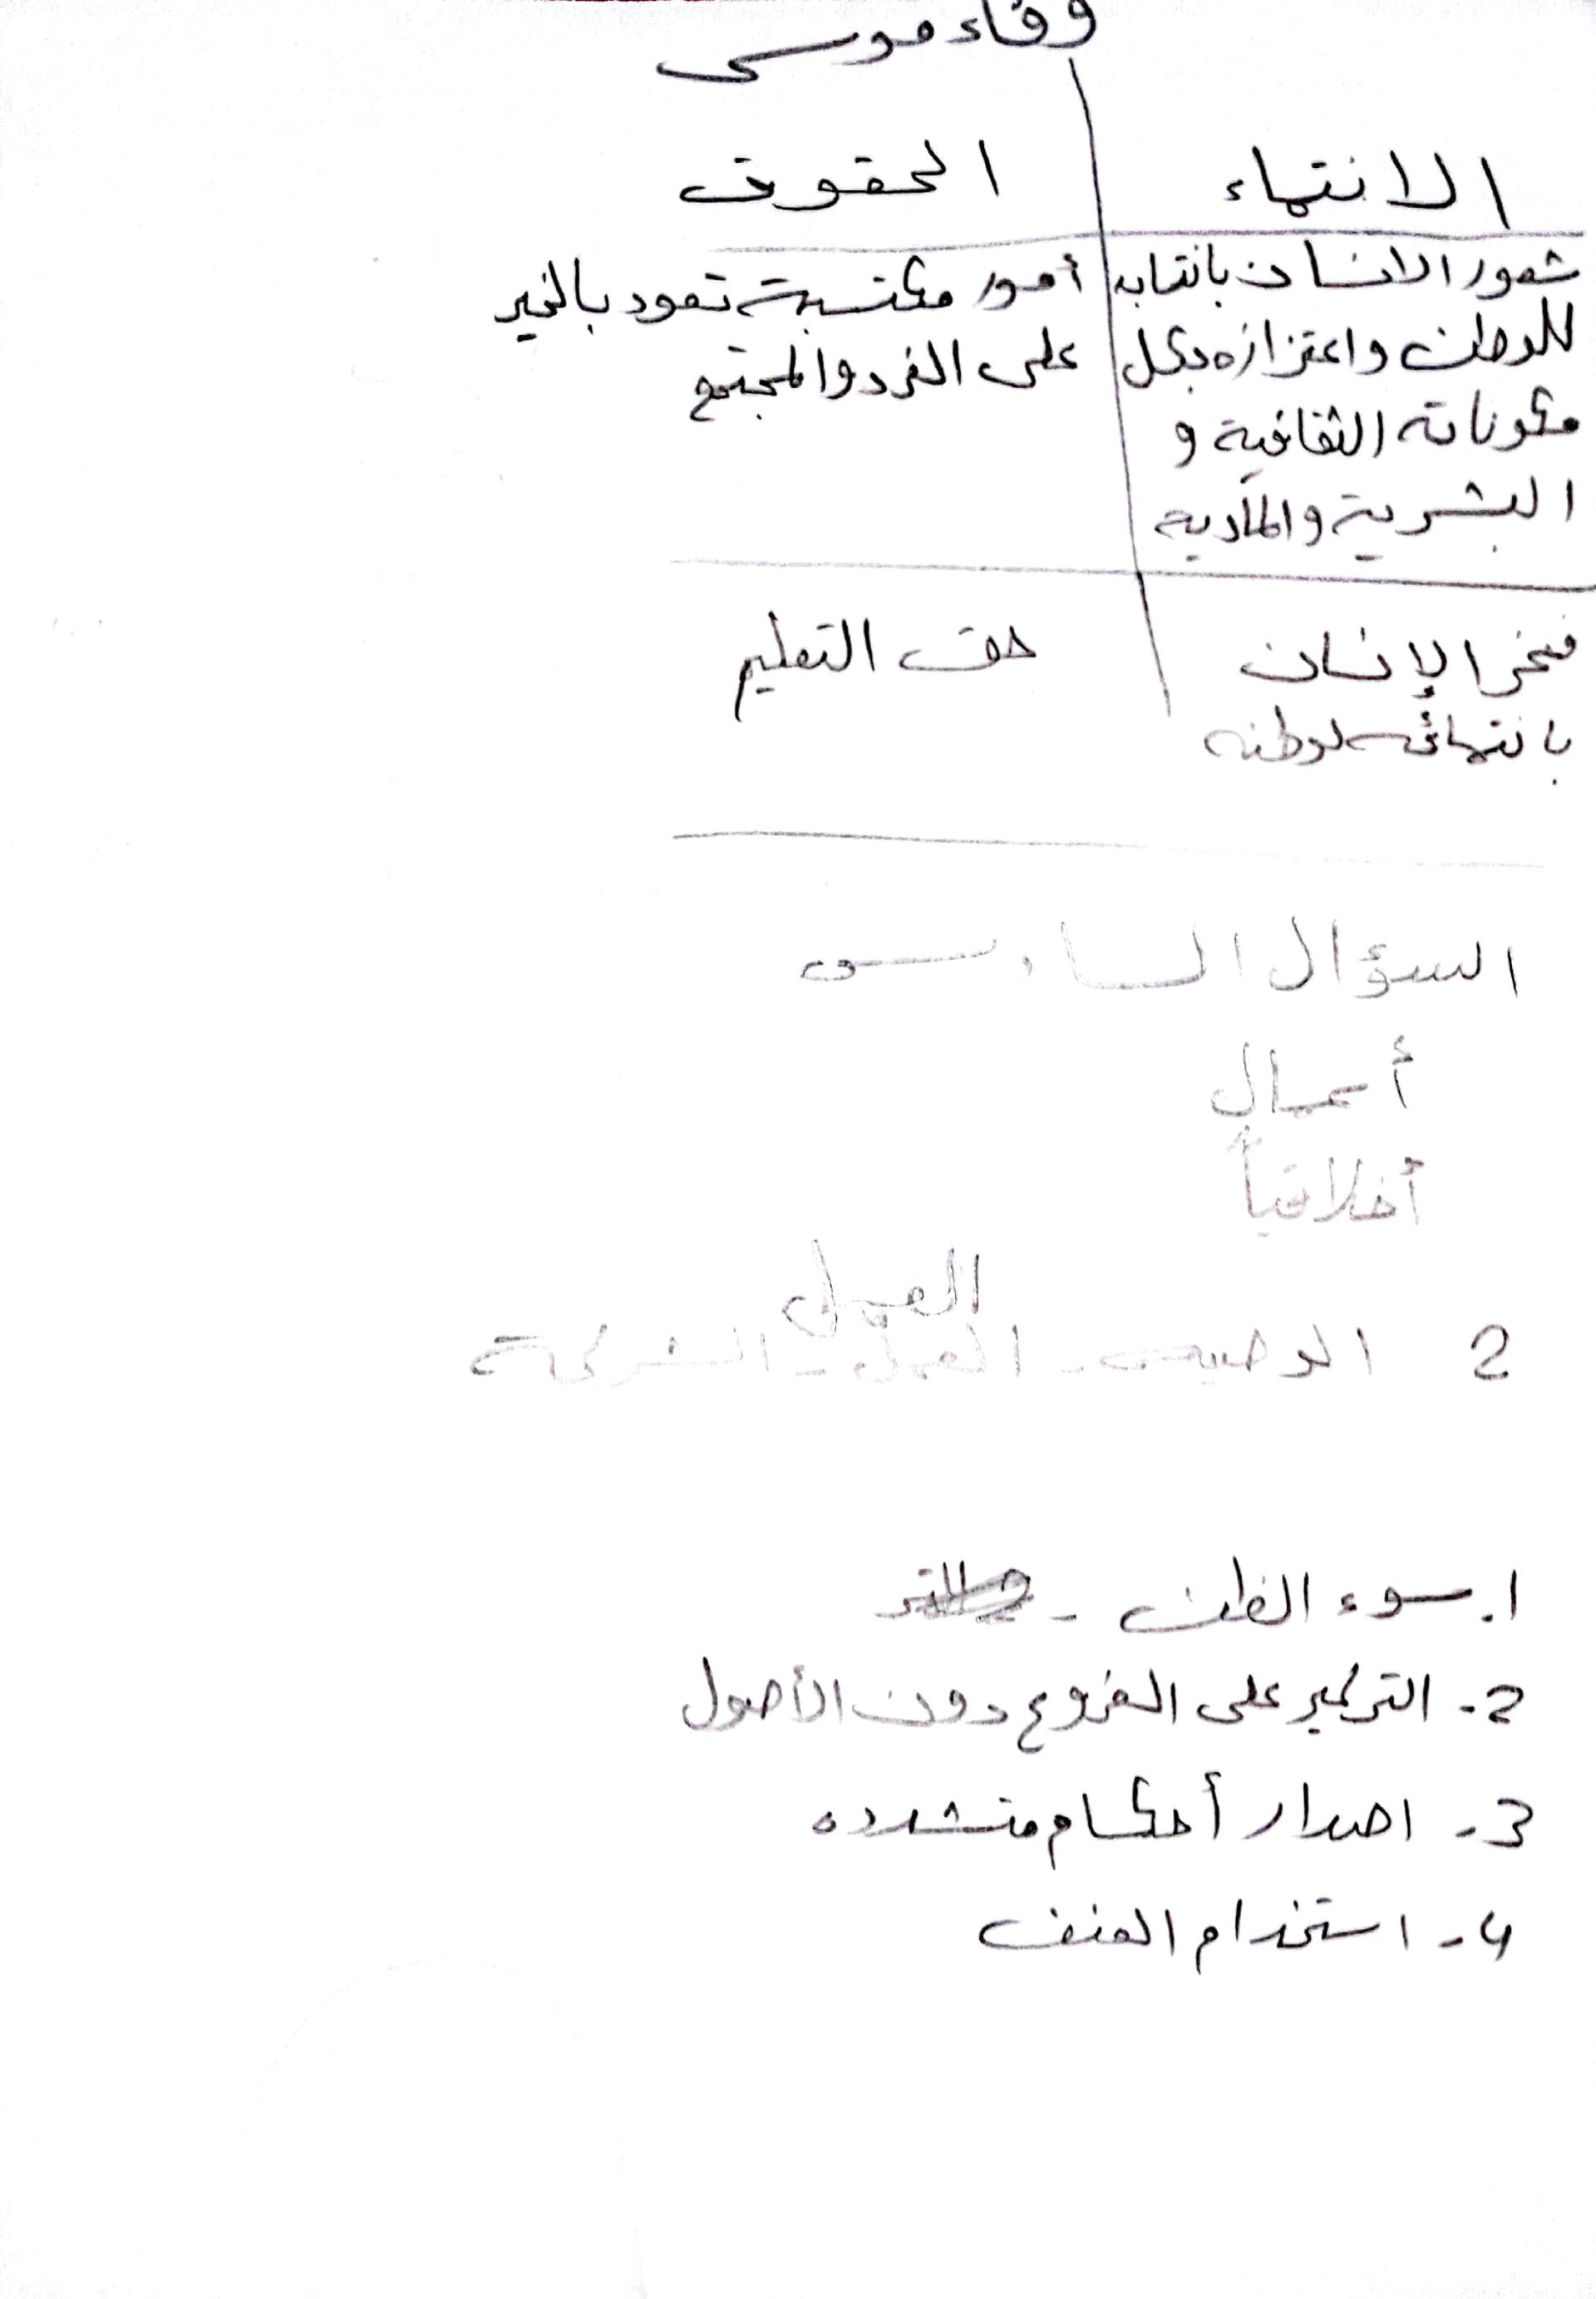 وفاء موسى
الانتماء
الحقوق
شعور الانسان بانتمابه
للوطن واعتزازه بكل
مكوناته الثقافية و
البشرية والمادية
أمور مكتسبة تعود بالخير
على الفرد والمجتمع
فخر الإنسان
بانتمائه لوطنه
حق التعليم
السؤال السادس
أعمال
أخلاقياً
العمل
2 العمل - الشركة
1. سوء الظن -
2- التركيز على الفروع دون الأصول
3- اصدار أحكام متشدده
4- استخدام العنف